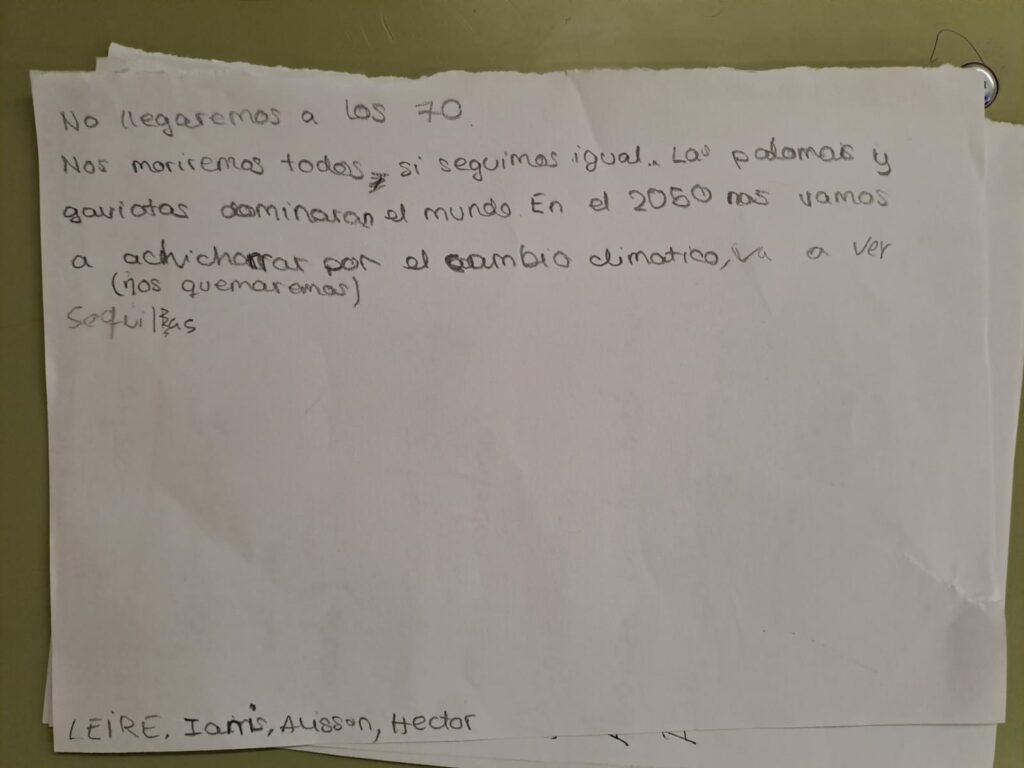 No llegaremos a los 70.
Nos moriremos todos, si seguimos igual.. Las palomas y
gaviotas dominaran el mundo. En el 2050 nos vamos
a achicharrar por el cambio climatico, va a ver
(nos quemaremos)
Sequillas
LEIRE, Iannis, Alisson, Hector